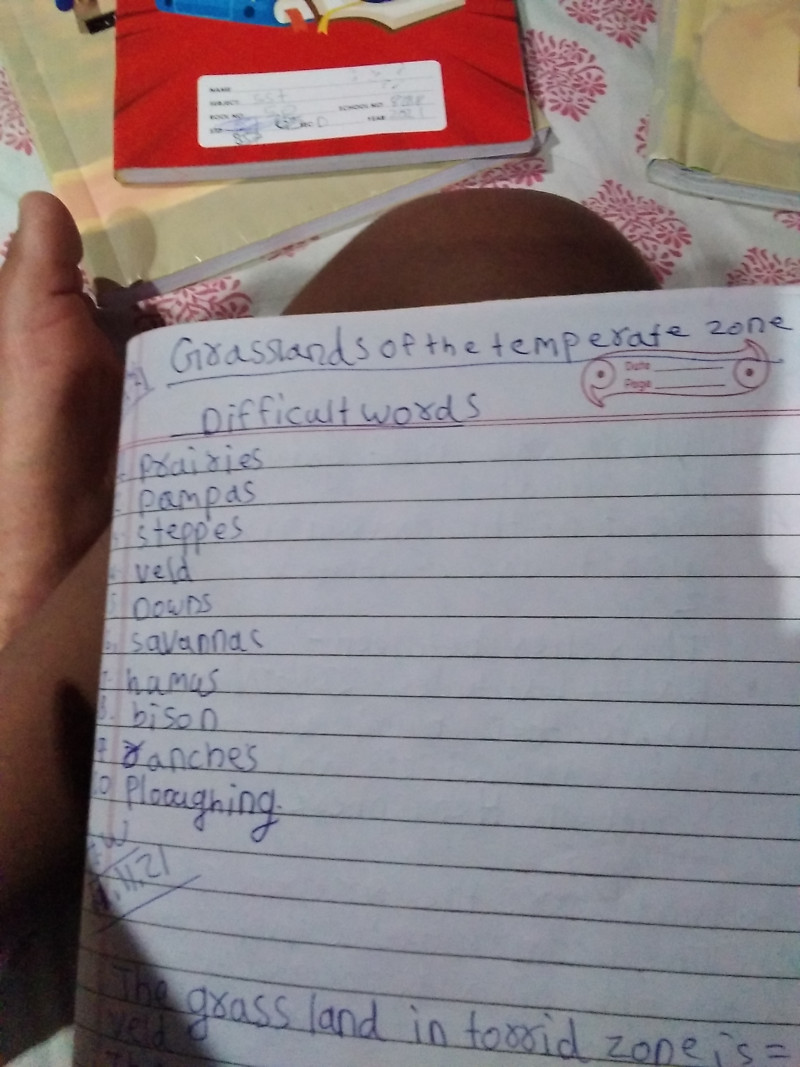 NAME
SUBJECT SST
ROLL NO.
SCHOOL NO.
STD
SEC D
YEAR 2021
Grasslands of the temperate zone
Date
Page
Difficult words
prairies
pampas
steppes
veld
Downs
savannas
hamus
8. bison
9 ranches
10 Plooughing.
11.21
The grass land in torrid zone is =
veld